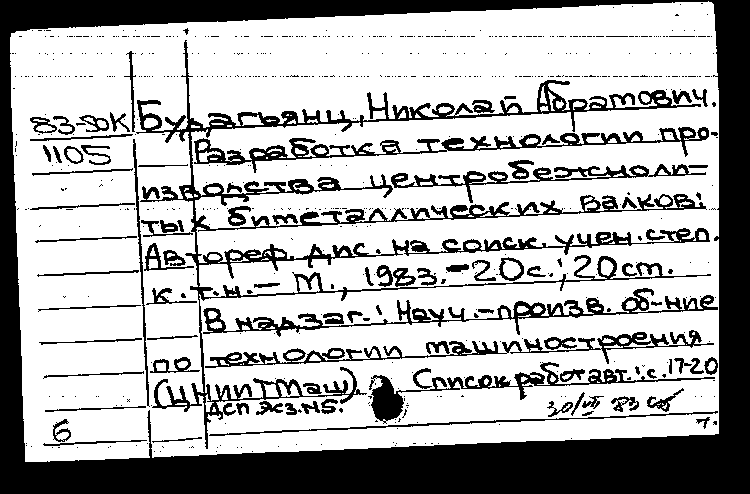 83-80К Будагьянц, Николай Абрамович.
1105 Разработка технологии про-
изводства центробежноли-
тых биметаллических валков:
Автореф. дис. на соиск. учен. степ.
к.т.н. – М., 1983. – 20 с.; 20 ст.
В надзаг.: Науч.-произв. об-ние
по технологии машиностроения
(ЦНИИТМаш). Список работ авт.: с. 17-20
ДСП. Экз. №5.
30/VII 83
б